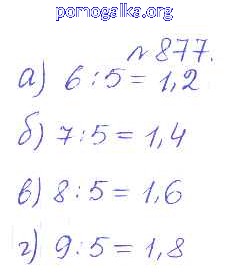 pomogalka.org
№877.
а) 6:5=1,2
б) 7:5=1,4
в) 8:5=1,6
г) 9:5=1,8